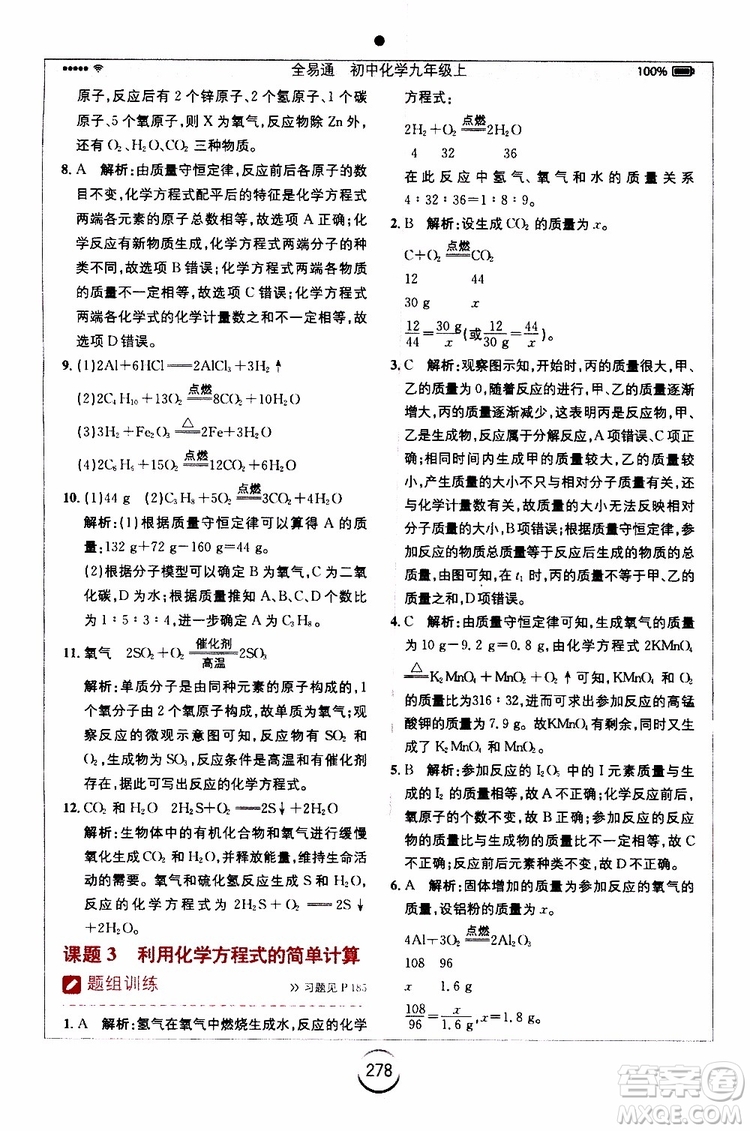 全易通 初中化学九年级上
100%
原子,反应后有 2 个锌原子、2 个氢原子、1 个碳原子、5 个氧原子,则 X 为氧气,反应物除 Zn 外,还有 O₂、H₂O、CO₂ 三种物质。
8. A 解析:由质量守恒定律,反应前后各原子的数目不变,化学方程式配平后的特征是化学方程式两端各元素的原子总数相等,故选项 A 正确;化学反应有新物质生成,化学方程式两端分子的种类不同,故选项 B 错误;化学方程式两端各物质的质量不一定相等,故选项 C 错误;化学方程式两端各化学式的化学计量数之和不一定相等,故选项 D 错误。
9. (1)2Al+6HCl══2AlCl₃+3H₂↑
(2)2C₄H₁₀+13O₂ 点燃══ 8CO₂+10H₂O
(3)3H₂+Fe₂O₃ △══ 2Fe+3H₂O
(4)2C₂H₆+15O₂ 点燃══ 12CO₂+6H₂O
10. (1)44 g (2)C₃H₈+5O₂ 点燃══ 3CO₂+4H₂O
解析:(1)根据质量守恒定律可以算得 A 的质量:132 g+72 g-160 g=44 g。
(2)根据分子模型可以知道 B 为氧气,C 为二氧化碳,D 为水;根据 A、B、C、D 分子个数比为 1∶5∶3∶4,进一步确定 A 为 C₃H₈。
11. 氧气 2SO₂+O₂ 催化剂══高温 2SO₃
解析:单质分子是由同种元素的原子构成的,1 个氧分子由 2 个氧原子构成,故单质为氧气;观察反应的微观示意图可知,反应物为 SO₂ 和 O₂,生成物为 SO₃,反应条件是高温和有催化剂,据此可写出反应的化学方程式。
12. CO₂ 和 H₂O 2H₂S+O₂══2S↓+2H₂O
解析:生物体中的有机化合物和氧气进行缓慢氧化生成 CO₂ 和 H₂O,并释放能量,维持生命活动的需要。氧气和硫化氢反应生成硫和水,反应的化学方程式为 2H₂S+O₂══2S↓+2H₂O。
课题 3 利用化学方程式的简单计算
题组训练
>> 习题见 P 185
1. A 解析:氢气在氧气中燃烧生成水,反应的化学
方程式:
2H₂+O₂ 点燃══ 2H₂O
4 32 36
在此反应中氢气、氧气和水的质量关系 4∶32∶36=1∶8∶9。
2. B 解析:设生成 CO₂ 的质量为 x。
C+O₂ 点燃══ CO₂
12 44
30 g x
12/44=30 g/x(或12/30 g=44/x)。
3. C 解析:观察图示知,开始时,丙的质量很大,甲、乙的质量为 0,随着反应的进行,甲、乙的质量逐渐增大,丙的质量逐渐减少,这说明丙是反应物,甲、乙是生成物,反应属于分解反应,A 项错误;随着反应的进行,生成甲的质量较大,乙的质量较小,产生质量的大小不只与相对分子质量有关,还与化学计量数有关,故根据质量大小无法反映相对分子质量的大小,B 项错误;由质量守恒定律可知,参加反应的物质总质量等于反应后生成的物质的总质量,由图可知,在 t₁ 时,丙的质量和甲、乙的质量相等,D 项错误。
4. C 解析:由质量守恒定律可知,生成氧气的质量为 10 g-9.2 g=0.8 g,根据化学方程式 2KMnO₄ △══ K₂MnO₄+MnO₂+O₂↑可知,高锰酸钾与氧气的质量比为316∶32,计算得出参加反应的高锰酸钾的质量为 7.9 g,故 KMnO₄ 有剩余,同时又生成了 K₂MnO₄ 和 MnO₂。
5. B 解析:参加反应的 I₂O₅ 中的 I 元素质量与生成的 I₂ 的质量相等,故 A 不正确;化学反应前后,氧原子的个数不变,B 正确;参加反应的反应物质量比与生成物的质量比不一定相等,故 C 不正确;反应前后分子的个数可能改变,故 D 不正确。
6. A 解析:固体增加的质量为参加反应的氧气的质量,设铝粉的质量为 x。
4Al+3O₂ 点燃══ 2Al₂O₃
108 96
x 1.6 g
108/96=x/1.6 g,x=1.8 g。
278
答案圈
MXQE.COM